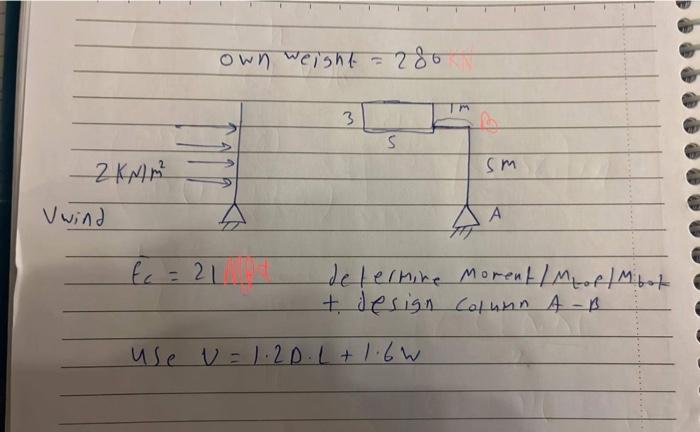 own weight = 286 KN
1m
3
B
5
5m
2 KN/m²
Vwind
A
Fc = 21 Mpa
determine Moment/Mtop/Mbot
+ design column A-B
use U = 1.2D.L + 1.6W